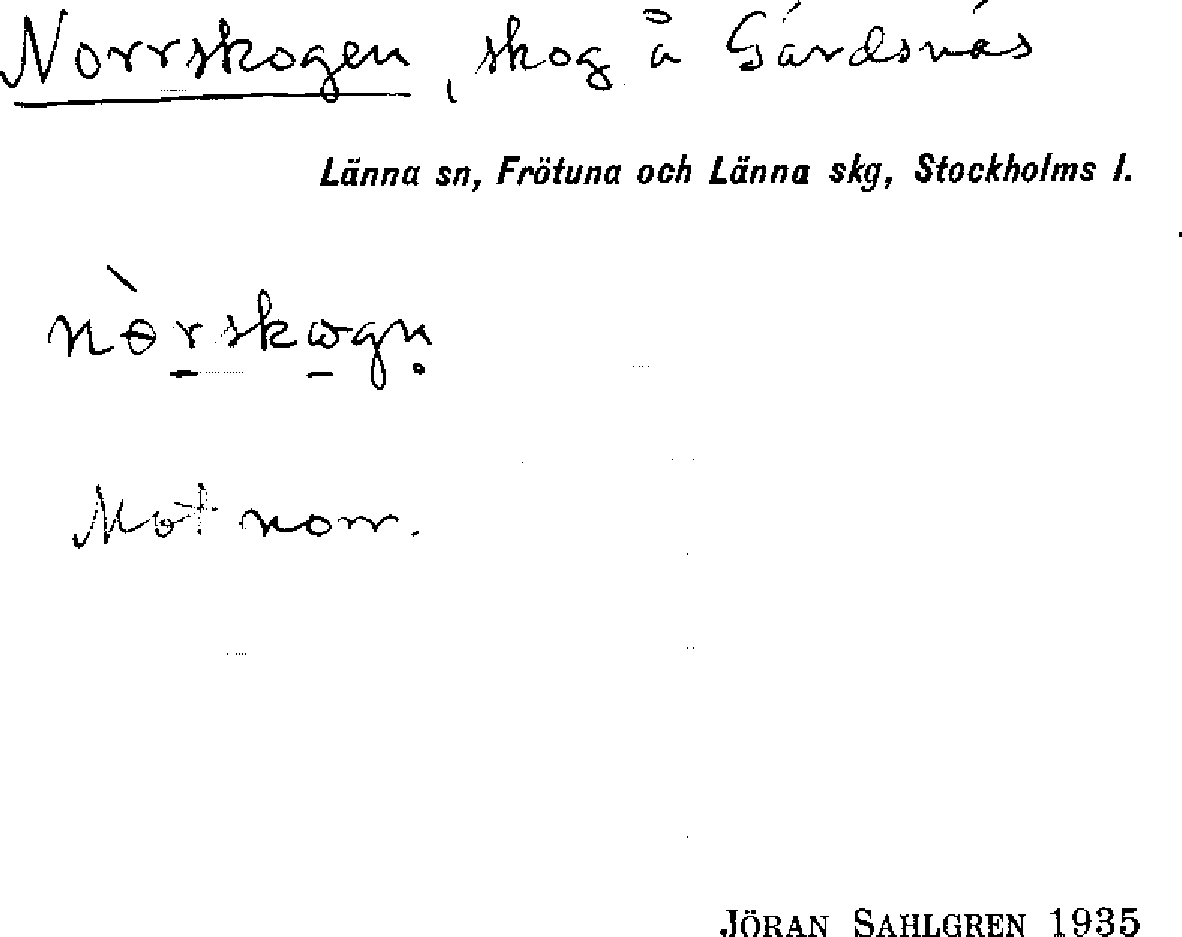 Norrskogen, skog å Gårdsnäs
Länna sn, Frötuna och Länna skg, Stockholms l.
nòrskogn̥
Mot norr.
JÖRAN SAHLGREN 1935